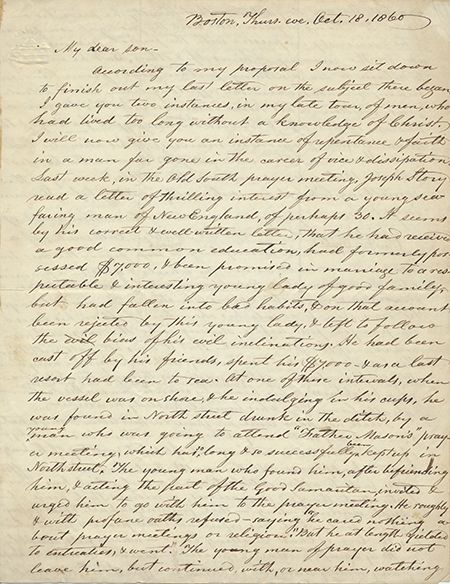 Boston, Thurs. eve, Oct. 18, 1860
My dear son-
According to my proposal I now sit down
to finish out my last letter on the subject there began
I gave you two instances, in my late tour, of men, who
had lived too long without a knowledge of Christ.
I will now give you an instance of repentance & faith
in a man far gone in the career of vice & dissipation
Last week, in the Old South prayer meeting, Joseph Story
read a letter of thrilling interest from a young sea
faring man of New England, of perhaps 30. It seems
by his correct & well written letter, that he had receive
a good common education, had formerly pos-
sessed $7,000, & been promised in marriage to a res-
pectable & interesting young lady, of good family,
but had fallen into bad habits, & on that account
been rejected by this young lady, & left to follow
the evil bias of his evil inclinations. He had been
cast off by his friends, spent his $7000 & as a last
resort had been to sea. At one of those intervals, when
the vessel was on shore, & he indulging in his cups, he
was found in North street drunk in the ditch, by a
young
man who was going to attend "Father Mason's" pray-
er meeting, which had long & so successfully been kept up in
North street. The young man who found him, after befriending
him, & acting the part of the Good Samaritan, invited &
urged him to go with him to the prayer meeting. He roughly
& with profane oaths, refused - saying he cared nothing a-
bout prayer meetings or religion. But he at length yielded
to entreaties, & went. The young man of prayer did not
leave him, but continued, with, or near him, watching